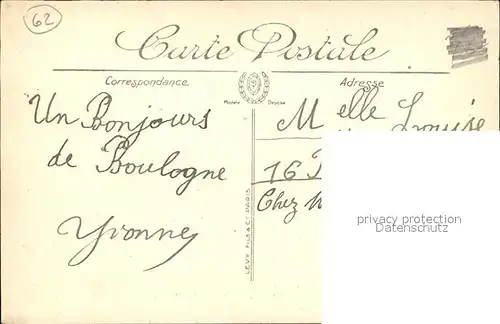 62
Carte Postale
Correspondance
Adresse
Modèle Déposé
Un Bonjours
de Boulogne
Yvonne
LEVY FILS & Cie PARIS
Melle Louise
16
Chez
privacy protection
Datenschutz